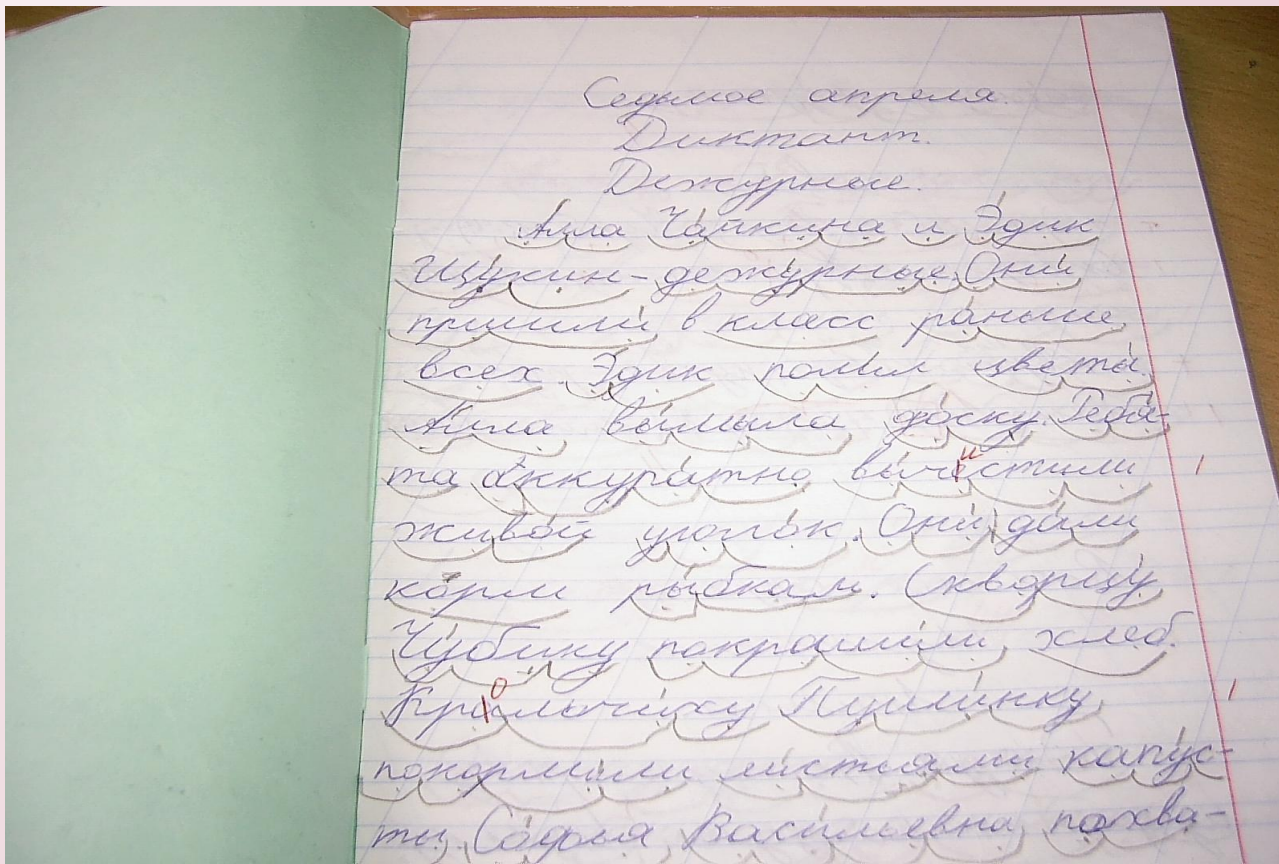 Седьмое апреля.
Диктант.
Дежурные.
Алла Чайкина и Эдик
Щукин - дежурные. Они
пришли в класс раньше
всех. Эдик полил цветы.
Алла вымыла доску. Ребя-
та аккуратно вычестили
живой уголок. Они дали
корм рыбкам. Скворцу
Чубику покрашили хлеб.
Кральчиху Пушинку
покормили листьями капус-
ты. Софья Васильевна похва-